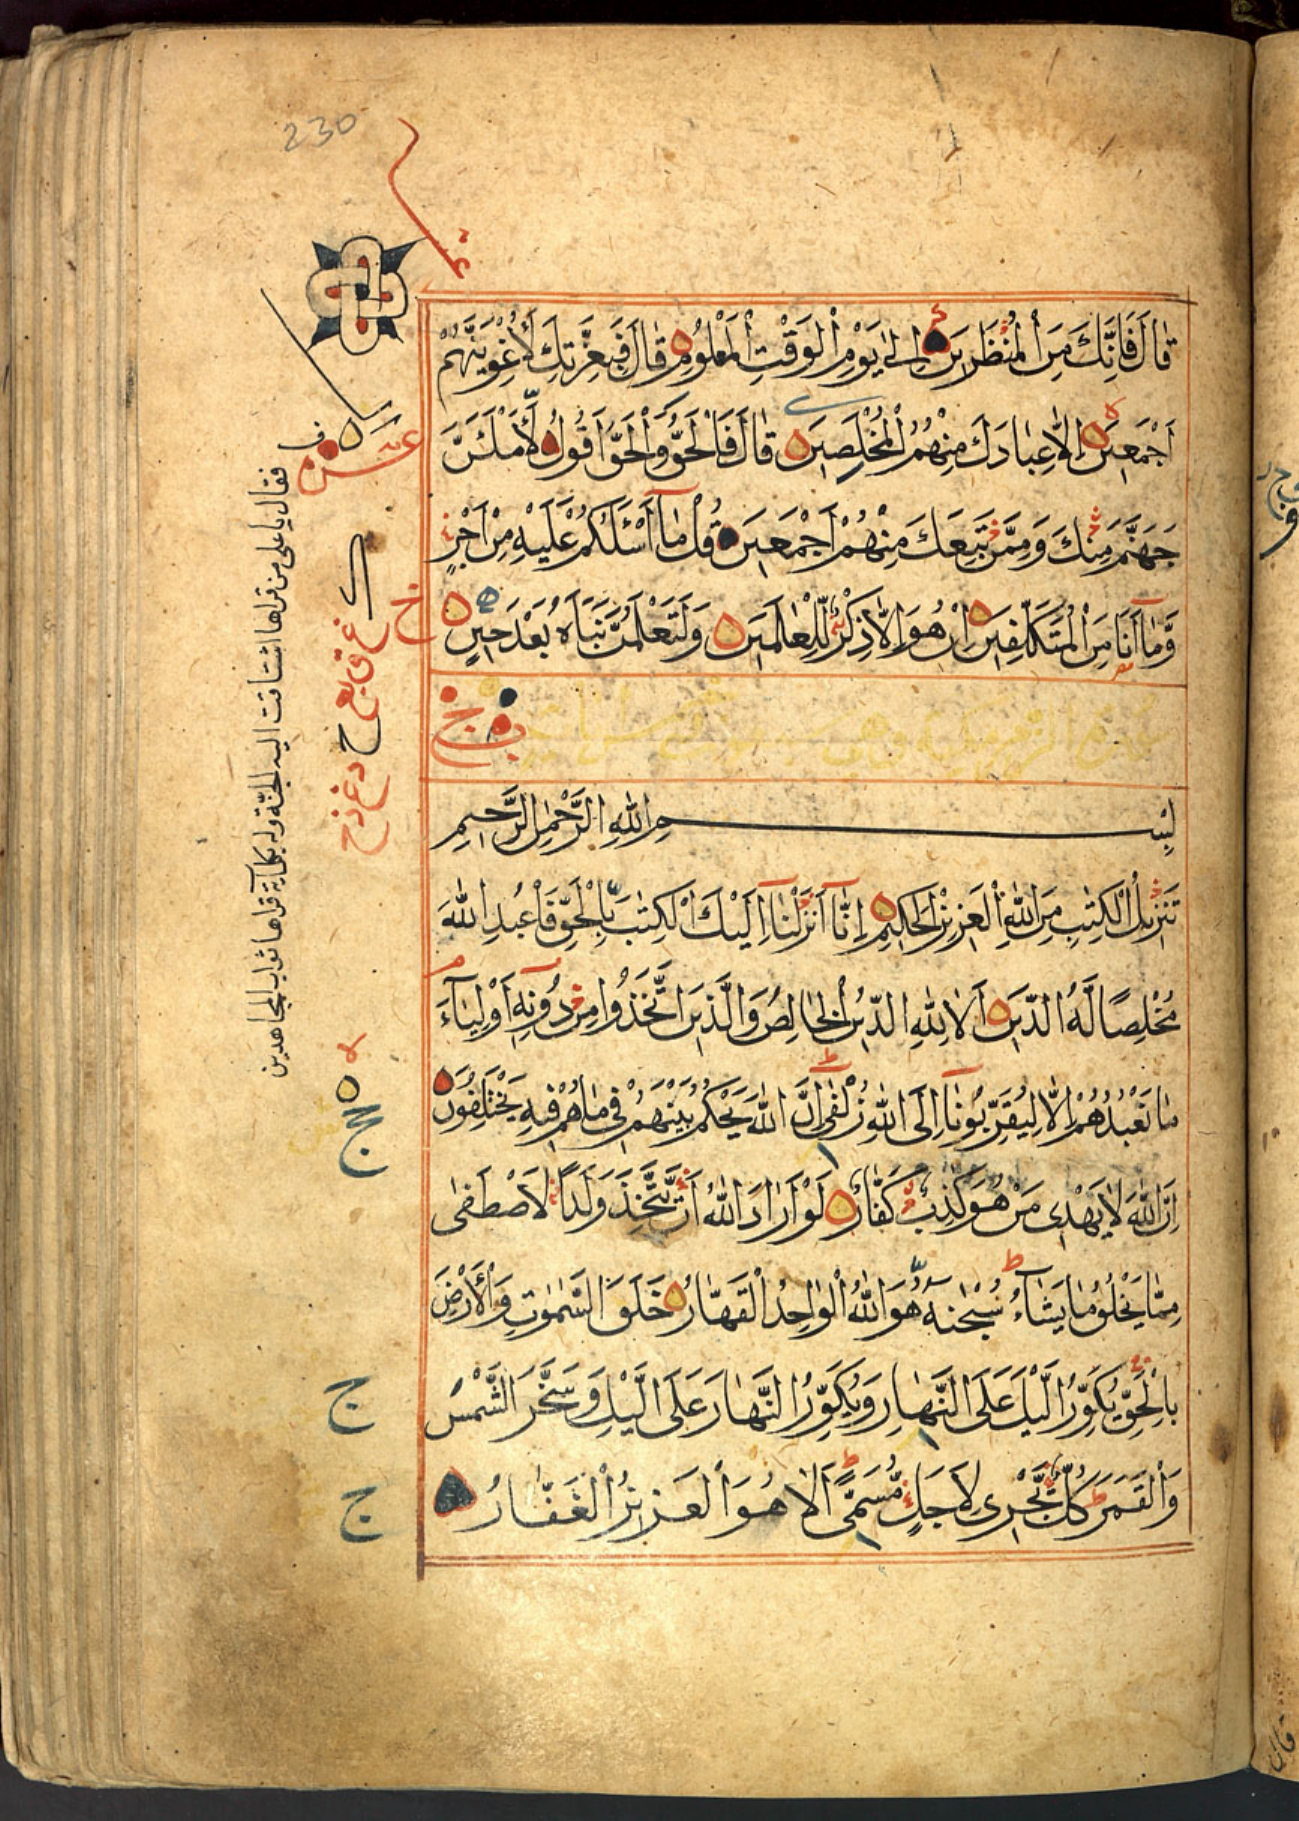 230
قَالَ فَاِنَّكَ مِنَ الْمُنْظَرِينَ اِلىٰ يَوْمِ الْوَقْتِ الْمَعْلُومِ قَالَ فَبِعِزَّتِكَ لَاُغْوِيَنَّهُمْ
اَجْمَعِينَ اِلَّا عِبَادَكَ مِنْهُمُ الْمُخْلَصِينَ قَالَ فَالْحَقُّ وَالْحَقَّ اَقُولُ لَاَمْلَئَنَّ
جَهَنَّمَ مِنْكَ وَمِمَّنْ تَبِعَكَ مِنْهُمْ اَجْمَعِينَ قُلْ مَآ اَسْئَلُكُمْ عَلَيْهِ مِنْ اَجْرٍ
وَّمَآ اَنَا مِنَ الْمُتَكَلِّفِينَ اِنْ هُوَ اِلَّا ذِكْرٌ لِّلْعٰلَمِينَ وَلَتَعْلَمُنَّ نَبَاَهُ بَعْدَ حِينٍ
بِسْمِ اللّٰهِ الرَّحْمٰنِ الرَّحِيمِ
تَنْزِيلُ الْكِتٰبِ مِنَ اللّٰهِ الْعَزِيزِ الْحَكِيمِ اِنَّآ اَنْزَلْنَآ اِلَيْكَ الْكِتٰبَ بِالْحَقِّ فَاعْبُدِ اللّٰهَ
مُخْلِصًا لَّهُ الدِّينَ اَلَا لِلّٰهِ الدِّينُ الْخَالِصُ وَالَّذِينَ اتَّخَذُوا مِنْ دُونِهٓ اَوْلِيَآءَ
مَا نَعْبُدُهُمْ اِلَّا لِيُقَرِّبُونَآ اِلَى اللّٰهِ زُلْفٰى اِنَّ اللّٰهَ يَحْكُمُ بَيْنَهُمْ فِي مَا هُمْ فِيهِ يَخْتَلِفُونَ
اِنَّ اللّٰهَ لَا يَهْدِى مَنْ هُوَ كٰذِبٌ كَفَّارٌ لَوْ اَرَادَ اللّٰهُ اَنْ يَّتَّخِذَ وَلَدًا لَاصْطَفٰى
مِمَّا يَخْلُقُ مَا يَشَآءُ سُبْحٰنَهُ هُوَ اللّٰهُ الْوَاحِدُ الْقَهَّارُ خَلَقَ السَّمٰوٰتِ وَالْاَرْضَ
بِالْحَقِّ يُكَوِّرُ الَّيْلَ عَلَى النَّهَارِ وَيُكَوِّرُ النَّهَارَ عَلَى الَّيْلِ وَسَخَّرَ الشَّمْسَ
وَالْقَمَرَ كُلٌّ يَّجْرِى لِاَجَلٍ مُّسَمًّى اَلَا هُوَ الْعَزِيزُ الْغَفَّارُ
فقال يا على من قراها اشتاقت اليه الجنّة وله بكل آية قراها ثواب المجاهدين
ج
ج